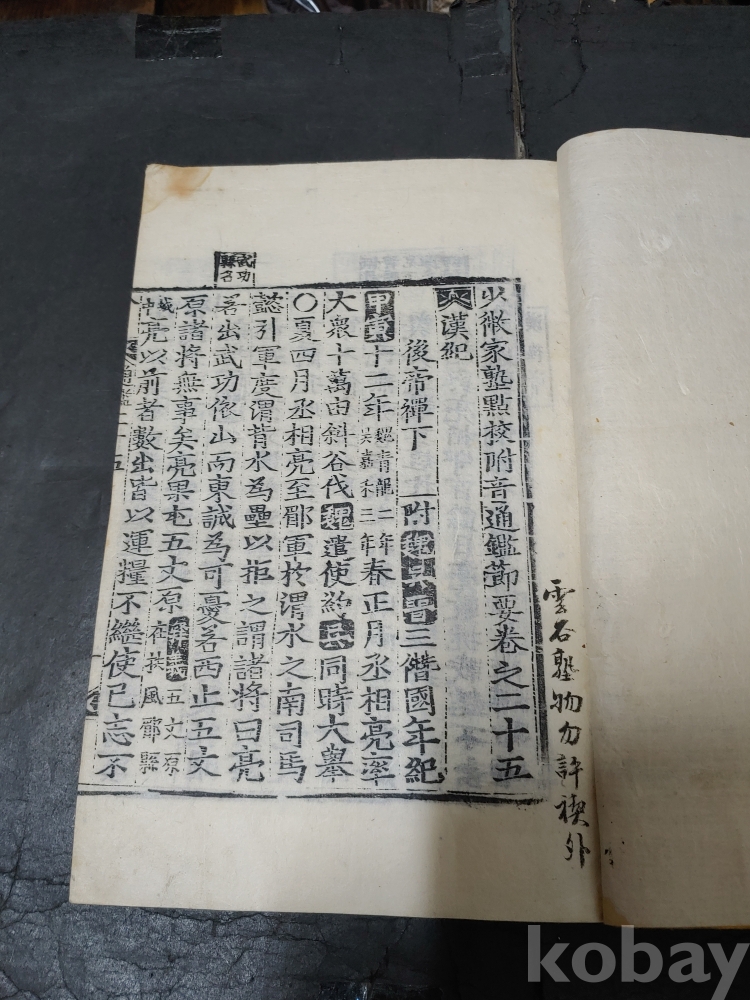 雲谷塾物勿許禊外
少微家塾點校附音通鑑節要卷之二十五
漢紀
後帝禪下 附魏吳晉三僭國年紀
甲寅十二年魏靑龍二年吳嘉禾三年春正月丞相亮率
大衆十萬由斜谷伐魏遣使約吳同時大擧
〇夏四月丞相亮至郿軍於渭水之南司馬
懿引軍度渭背水為壘以拒之謂諸將曰亮
武功縣名
若出武功依山而東誠為可憂若西止五丈
原諸將無事矣亮果屯五丈原五丈原在扶風郿縣
亮以前者數出皆以運糧不繼使已志不
通鑑二十五
kobay